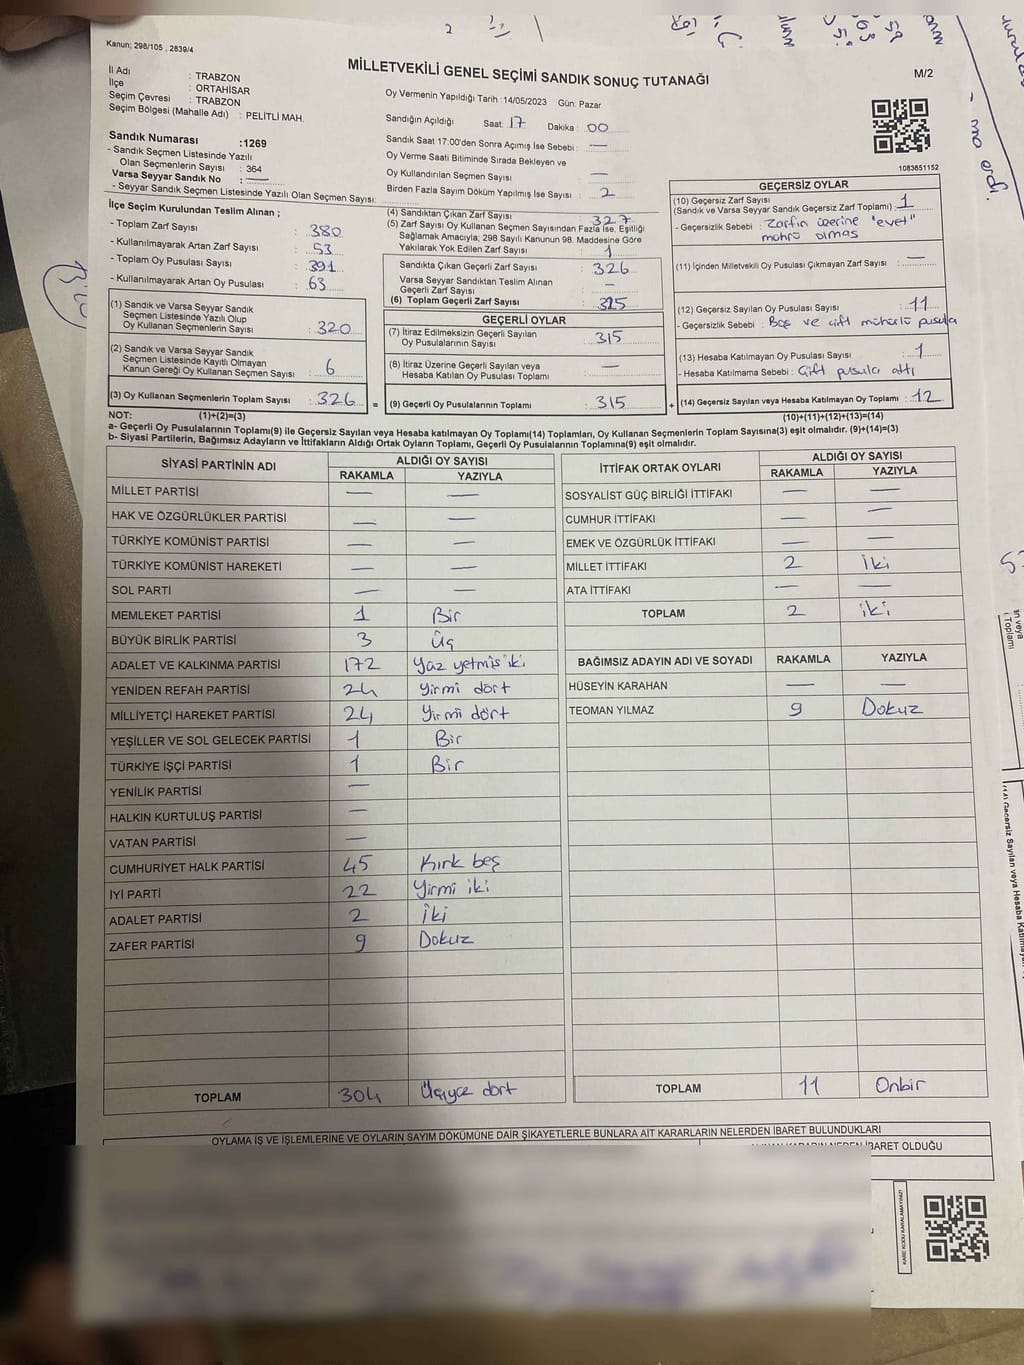 Kanun; 298/105 , 2839/4
MİLLETVEKİLİ GENEL SEÇİMİ SANDIK SONUÇ TUTANAĞI
M/2
İl Adı : TRABZON
İlçe : ORTAHİSAR
Seçim Çevresi : TRABZON
Seçim Bölgesi (Mahalle Adı) : PELİTLİ MAH.
Oy Vermenin Yapıldığı Tarih : 14/05/2023 Gün: Pazar
Sandığın Açıldığı Saat: 17 Dakika : 00
Sandık Saat 17:00'den Sonra Açımış İse Sebebi : —
Oy Verme Saati Bitiminde Sırada Bekleyen ve
Oy Kullandırılan Seçmen Sayısı : —
Birden Fazla Sayım Döküm Yapılmış İse Sayısı : 2
1083651152
Sandık Numarası :1269
- Sandık Seçmen Listesinde Yazılı
Olan Seçmenlerin Sayısı : 364
Varsa Seyyar Sandık No : —
- Seyyar Sandık Seçmen Listesinde Yazılı Olan Seçmen Sayısı:
İlçe Seçim Kurulundan Teslim Alınan ;
- Toplam Zarf Sayısı : 380
- Kullanılmayarak Artan Zarf Sayısı : 53
- Toplam Oy Pusulası Sayısı : 391
- Kullanılmayarak Artan Oy Pusulası : 63
(1) Sandık ve Varsa Seyyar Sandık
Seçmen Listesinde Yazılı Olup
Oy Kullanan Seçmenlerin Sayısı : 320
(2) Sandık ve Varsa Seyyar Sandık
Seçmen Listesinde Kayıtlı Olmayan
Kanun Gereği Oy Kullanan Seçmen Sayısı : 6
(3) Oy Kullanan Seçmenlerin Toplam Sayısı : 326 =
(4) Sandıktan Çıkan Zarf Sayısı : 327
(5) Zarf Sayısı Oy Kullanan Seçmen Sayısından Fazla İse, Eşitliği
Sağlamak Amacıyla; 298 Sayılı Kanunun 98. Maddesine Göre
Yakılarak Yok Edilen Zarf Sayısı : 1
Sandıkta Çıkan Geçerli Zarf Sayısı : 326
Varsa Seyyar Sandıktan Teslim Alınan
Geçerli Zarf Sayısı : —
(6) Toplam Geçerli Zarf Sayısı : 325
GEÇERLİ OYLAR
(7) İtiraz Edilmeksizin Geçerli Sayılan
Oy Pusulalarının Sayısı : 315
(8) İtiraz Üzerine Geçerli Sayılan veya
Hesaba Katılan Oy Pusulası Toplamı : —
(9) Geçerli Oy Pusulalarının Toplamı : 315 +
GEÇERSİZ OYLAR
(10) Geçersiz Zarf Sayısı
(Sandık ve Varsa Seyyar Sandık Geçersiz Zarf Toplamı) : 1
- Geçersizlik Sebebi : Zarfın üzerine "evet"
mührü olması
(11) İçinden Milletvekili Oy Pusulası Çıkmayan Zarf Sayısı : —
(12) Geçersiz Sayılan Oy Pusulası Sayısı : 11
- Geçersizlik Sebebi : Boş ve çift mühürlü pusula
(13) Hesaba Katılmayan Oy Pusulası Sayısı : 1
- Hesaba Katılmama Sebebi : Çift pusula attı
(14) Geçersiz Sayılan veya Hesaba Katılmayan Oy Toplamı : 12
NOT: (1)+(2)=(3) (10)+(11)+(12)+(13)=(14)
a- Geçerli Oy Pusulalarının Toplamı(9) ile Geçersiz Sayılan veya Hesaba Katılmayan Oy Toplamı(14) Toplamları, Oy Kullanan Seçmenlerin Toplam Sayısına(3) eşit olmalıdır. (9)+(14)=(3)
b- Siyasi Partilerin, Bağımsız Adayların ve İttifakların Aldığı Ortak Oyların Toplamı, Geçerli Oy Pusulalarının Toplamına(9) eşit olmalıdır.
SİYASİ PARTİNİN ADI ALDIĞI OY SAYISI
RAKAMLA YAZIYLA
MİLLET PARTİSİ — —
HAK VE ÖZGÜRLÜKLER PARTİSİ — —
TÜRKİYE KOMÜNİST PARTİSİ — —
TÜRKİYE KOMÜNİST HAREKETİ — —
SOL PARTİ — —
MEMLEKET PARTİSİ 1 Bir
BÜYÜK BİRLİK PARTİSİ 3 Üç
ADALET VE KALKINMA PARTİSİ 172 Yüz yetmiş iki
YENİDEN REFAH PARTİSİ 24 Yirmi dört
MİLLİYETÇİ HAREKET PARTİSİ 24 Yirmi dört
YEŞİLLER VE SOL GELECEK PARTİSİ 1 Bir
TÜRKİYE İŞÇİ PARTİSİ 1 Bir
YENİLİK PARTİSİ —
HALKIN KURTULUŞ PARTİSİ —
VATAN PARTİSİ —
CUMHURİYET HALK PARTİSİ 45 Kırk beş
İYİ PARTİ 22 Yirmi iki
ADALET PARTİSİ 2 İki
ZAFER PARTİSİ 9 Dokuz
TOPLAM 304 Üçyüz dört
İTTİFAK ORTAK OYLARI ALDIĞI OY SAYISI
RAKAMLA YAZIYLA
SOSYALİST GÜÇ BİRLİĞİ İTTİFAKI — —
CUMHUR İTTİFAKI — —
EMEK VE ÖZGÜRLÜK İTTİFAKI — —
MİLLET İTTİFAKI 2 İki
ATA İTTİFAKI — —
TOPLAM 2 iki
BAĞIMSIZ ADAYIN ADI VE SOYADI RAKAMLA YAZIYLA
HÜSEYİN KARAHAN — —
TEOMAN YILMAZ 9 Dokuz
TOPLAM 11 Onbir
OYLAMA İŞ VE İŞLEMLERİNE VE OYLARIN SAYIM DÖKÜMÜNE DAİR ŞİKAYETLERLE BUNLARA AİT KARARLARIN NELERDEN İBARET BULUNDUKLARI
ALINAN KARARIN NEDEN İBARET OLDUĞU
KARE KODU KARALAMAYINIZ!